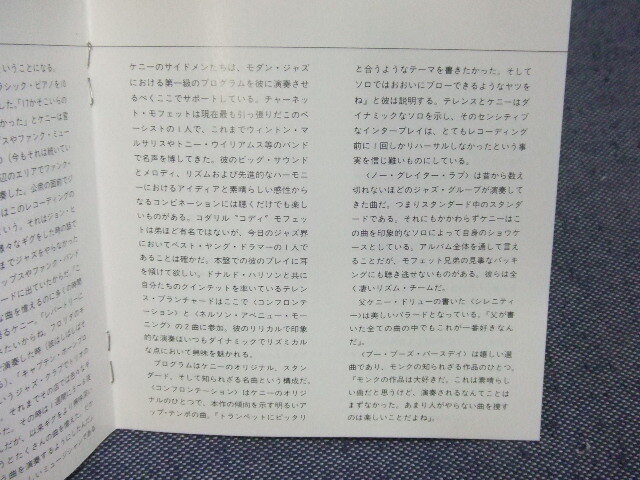 いうことになる。
ラシック・ピアノを10
した。「17かそこいらの
かった」とケニーは言
スやファンク・ミュー
（今もそれは続いてい
辺のエリアでファンク・
奏した。公衆の面前でジ
はこのレコーディングの
という。それはジョン・ヒ
様々なギグをした時の話で
までジャズをやらなかった
ップスやファンク・バンド
ードに出ていたからだ。こ
な曲を憶えるのに多くの時間
語るケニー。「レパートリーに
みたいからね。フロリダの
演奏した時（彼はしばしばそ
る）、「キャプテン・ホーンブロ
いうジャズ・クラブでトリオの
。それまでその店ではあらゆ
た。その時は1週間たってみ
んだが、以来ギグをより興味
うとたくさんの曲を憶えた。
を演奏するようにしたんだ。
ケニーのサイドメンたちは、モダン・ジャズ
における第一級のプログラムを彼に演奏させ
るべくここでサポートしている。チャーネッ
ト・モフェットは現在最も引っ張りだこのベ
ーシストの1人で、これまでウィントン・マ
ルサリスやトニー・ウイリアムス等のバンド
で名声を博してきた。彼のビッグ・サウンド
とメロディ、リズムおよび先進的なハーモニ
ーにおけるアイディアと素晴らしい感性から
なるコンビネーションには聴くだけでも楽し
いものがある。コダリル “コディ” モフェッ
トは弟ほど有名ではないが、今日のジャズ界
においてベスト・ヤング・ドラマーの1人で
あることは確かだ。本盤での彼のプレイに耳
を傾けて欲しい。ドナルド・ハリソンと共に
自分たちのクインテットを率いているテレン
ス・ブランチャードはここで〈コンフロンテ
ーション〉と〈ネルソン・アベニュー・モー
ニング〉の2曲に参加。彼のリリカルで印象
的な演奏はいつもダイナミックでリズミカル
な点において興味を魅かれる。
プログラムはケニーのオリジナル、スタン
ダード、そして知られざる名曲という構成だ。
〈コンフロンテーション〉はケニーのオリジ
ナルのひとつで、本作の傾向を示す明るいア
ップ・テンポの曲。「トランペットにピッタリ
と合うようなテーマを書きたかった。そして
ソロではおおいにブローできるようなヤツを
ね」と彼は説明する。テレンスとケニーはダ
イナミックなソロを示し、そのセンシティブ
なインタープレイは、とてもレコーディング
前に1回しかリハーサルしなかったという事
実を信じ難いものにしている。
〈ノー・グレイター・ラブ〉は昔から数え
切れないほどのジャズ・グループが演奏して
きた曲だ。つまりスタンダード中のスタンダ
ードである。それにもかかわらずケニーはこ
の曲を印象的なソロによって自身のショウケ
ースとしている。アルバム全体を通して言え
ることだが、モフェット兄弟の見事なバッキ
ングにも聴き逃せないものがある。彼らは全
く凄いリズム・チームだ。
父ケニー・ドリューの書いた〈シレニティ
ー〉は美しいバラードとなっている。「父が
書いた全ての曲の中でもこれが一番好きなん
だ」。
〈ブー・ブーズ・バースデイ〉は嬉しい選
曲であり、モンクの知られざる作品のひとつ。
「モンクの作品は大好きだ。これは素晴らし
い曲だと思うけど、演奏されるなんてことは
まずなかった。あまり人がやらない曲を捜す
のは楽しいことだよね」。